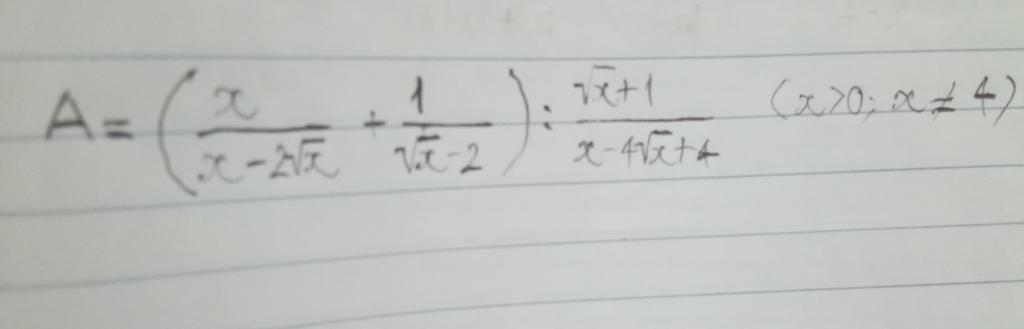 A = (x/(x - 2√x) + 1/(√x - 2)) : (√x + 1)/(x - 4√x + 4) (x > 0; x ≠ 4)